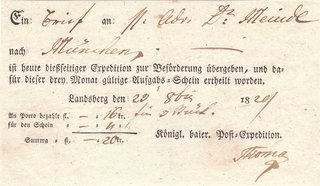 Ein Brief an: H. Adv. Dr. Meindl
nach München,
ist heute dießseitiger Expedition zur Beförderung übergeben, und da-
für dieser drey Monat gültige Aufgabs-Schein ertheilt worden.
Landsberg den 20 8bis 1829
An Porto bezahlt fl. — 16 kr. für 2 Stück.
für den Schein — 4
Summa fl. — 20 kr.
Königl. baier. Post-Expedition.
Thoma